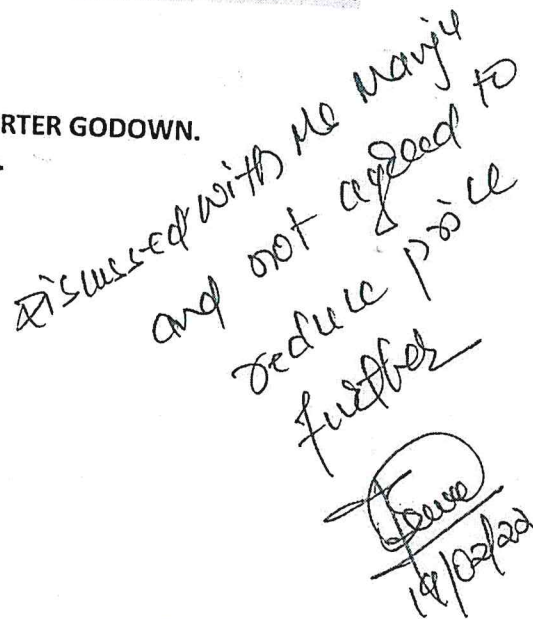 RTER GODOWN.
Discussed with Mr Manju
and not agreed to
reduce price
further